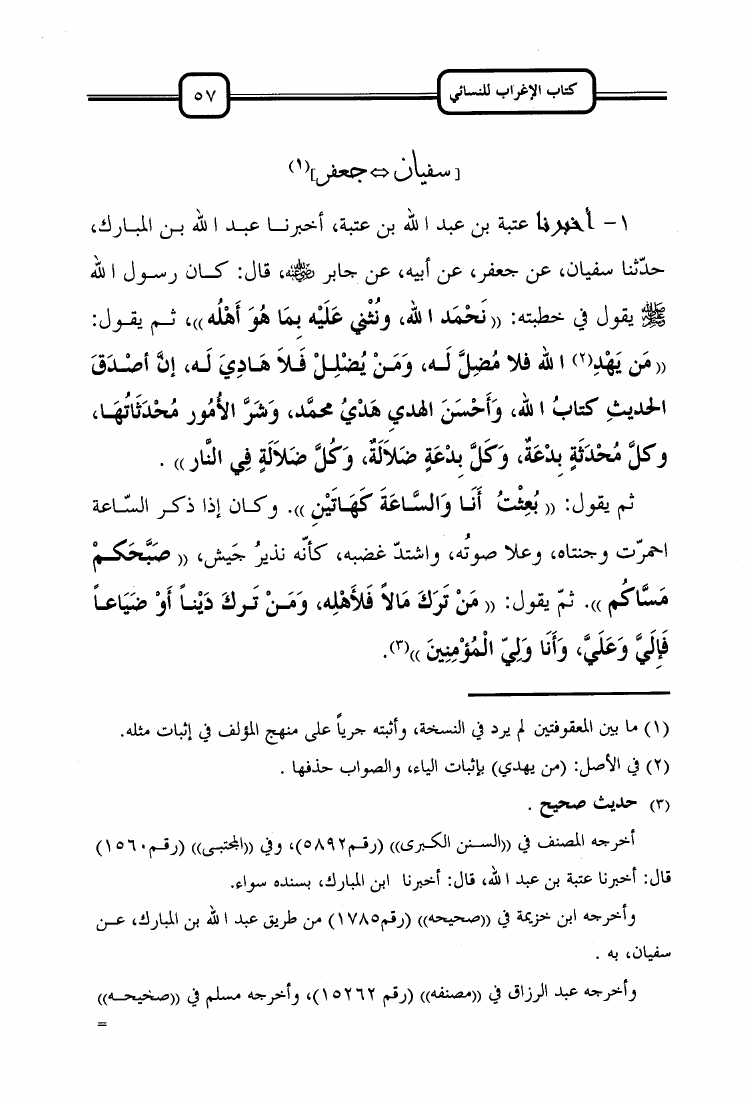 كتاب الإغراب للنسائي ٥٧
[سفيان ⇔ جعفر](١)
١- أخبرنا عتبة بن عبد الله بن عتبة، أخبرنا عبد الله بن المبارك،
حدّثنا سفيان، عن جعفر، عن أبيه، عن جابر ﵁، قال: كان رسول الله
ﷺ يقول في خطبته: ((نَحْمَد الله، ونُثْنِي عَلَيْه بِمَا هُوَ أَهْلُه))، ثم يقول:
((مَن يَهْدِ(٢) الله فلا مُضِلَّ لَه، وَمَنْ يُضْلِلْ فَلاَ هَادِيَ لَه، إنَّ أصْدَقَ
الحديثِ كتابُ الله، وَأَحْسَنَ الهدي هَدْيُ محمَّد، وَشَرَّ الأُمُور مُحْدَثَاتُهَا،
وكلَّ مُحْدَثَةٍ بِدْعَةٌ، وَكَلَّ بِدْعَةٍ ضَلاَلَةٌ، وَكُلَّ ضَلاَلَةٍ فِي النَّار)) .
ثم يقول: ((بُعِثْتُ أَنَا وَالسَّاعَةَ كَهَاتَيْنِ)). وكان إذا ذكر السّاعة
احمرّت وجنتاه، وعلا صوتُه، واشتدّ غضبه، كأنّه نذيرُ جَيش، ((صَبَّحَكم
مَسَّاكُم)). ثمّ يقول: ((مَنْ تَرَكَ مَالاً فَلأَهْلِه، وَمَنْ تَركَ دَيْناً أَوْ ضَيَاعاً
فَإِلَيَّ وَعَلَيَّ، وَأَنَا وَلِيّ الْمُؤْمِنِينَ))(٣).
(١) ما بين المعقوفتين لم يرد في النسخة، وأثبته جرياً على منهج المؤلف في إثبات مثله.
(٢) في الأصل: (من يهدي) بإثبات الياء، والصواب حذفها .
(٣) حديث صحيح .
أخرجه المصنف في ((السنن الكبرى)) (رقم٥٨٩٢)، وفي ((المجتبى)) (رقم١٥٦٠)
قال: أخبرنا عتبة بن عبد الله، قال: أخبرنا ابن المبارك، بسنده سواء.
وأخرجه ابن خزيمة في ((صحيحه)) (رقم١٧٨٥) من طريق عبد الله بن المبارك، عن
سفيان، به .
وأخرجه عبد الرزاق في ((مصنفه)) (رقم ١٥٢٦٢)، وأخرجه مسلم في ((صحيحه))
=